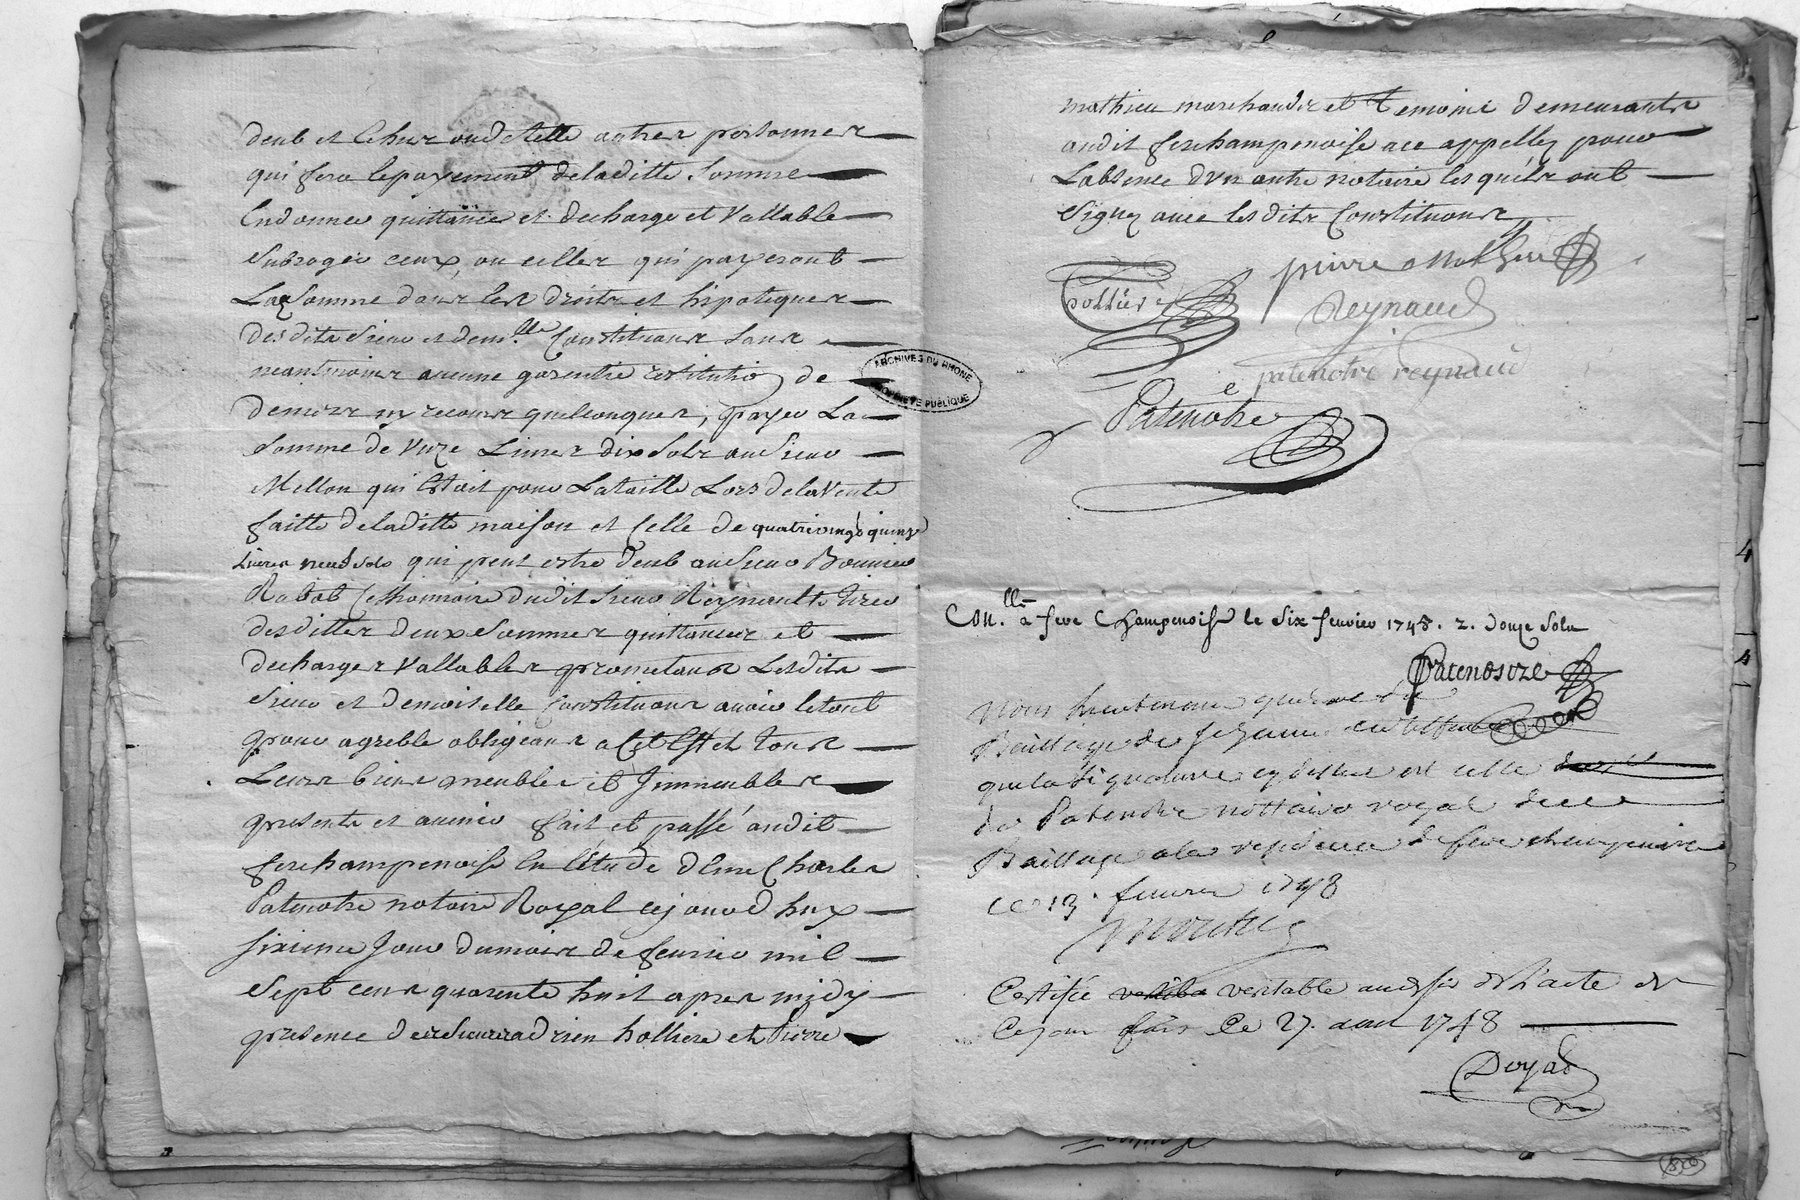 deub et Echus ou de telle autres personnes
qui fera le payement de laditte Somme
En donner quittance et decharge et Vallable
Subroger ceux, ou celles qui payeront
La Somme dans les droits et hipoteques
desdits Sieur et dem.lle Constituans Sans
neantmoins aucune garentie restitution de
deniers ny recours quelconques, payer La
Somme de Unze Livres dix Sols au Sieur
Mellon qui Estoit pour La taille Lors de la Vente
faitte de laditte maison et Celle de quatrevingt quinze
Livres neuf Sols qui peut estre deub au Sieur
dudit Sieur Reynault tirer
desdittes deux Sommes quittances et
decharges Vallables promettans Lesdits
Sieur et demoiselle Constituans avoir le tout
pour agreble obligeans a Cet Effet tous
Leurs biens meubles et Immeubles
presents et avenir fait et passé audit
ferchampenoise En l'étude d'Eme Charles
Patenotre notaire Royal cejourd huy
sixieme Jour du mois de fevrier mil
Sept cens quarente huit apres midy
presence des Sieurs adrien hollier et Pierre
mathieu marchands et temoins demeurants
audit ferchampenoise ace appellez pour
L'absence d'un autre notaire lesquels ont
Signez avec lesdits Constituans
pierre Mathieu
hollier
Reynaud
patenotre reynaud
Patenotre
ARCHIVES DU RHONE
PROPRIÉTÉ PUBLIQUE
Con.lle a fere Champenoise le Six fevrier 1748. r. douze Sols
Patenostre
Nous Lieutenant general du
Bailliage de Sezanne certiffions
que la Signature cy dessus est celle
de Patenotre nottaire royal de ce
Bailliage a la residence de fere champenoise
ce 13. fevrier 1748
Certifié veritable au desir de l'acte de
Cejour fait Ce 27. avril 1748
4
4